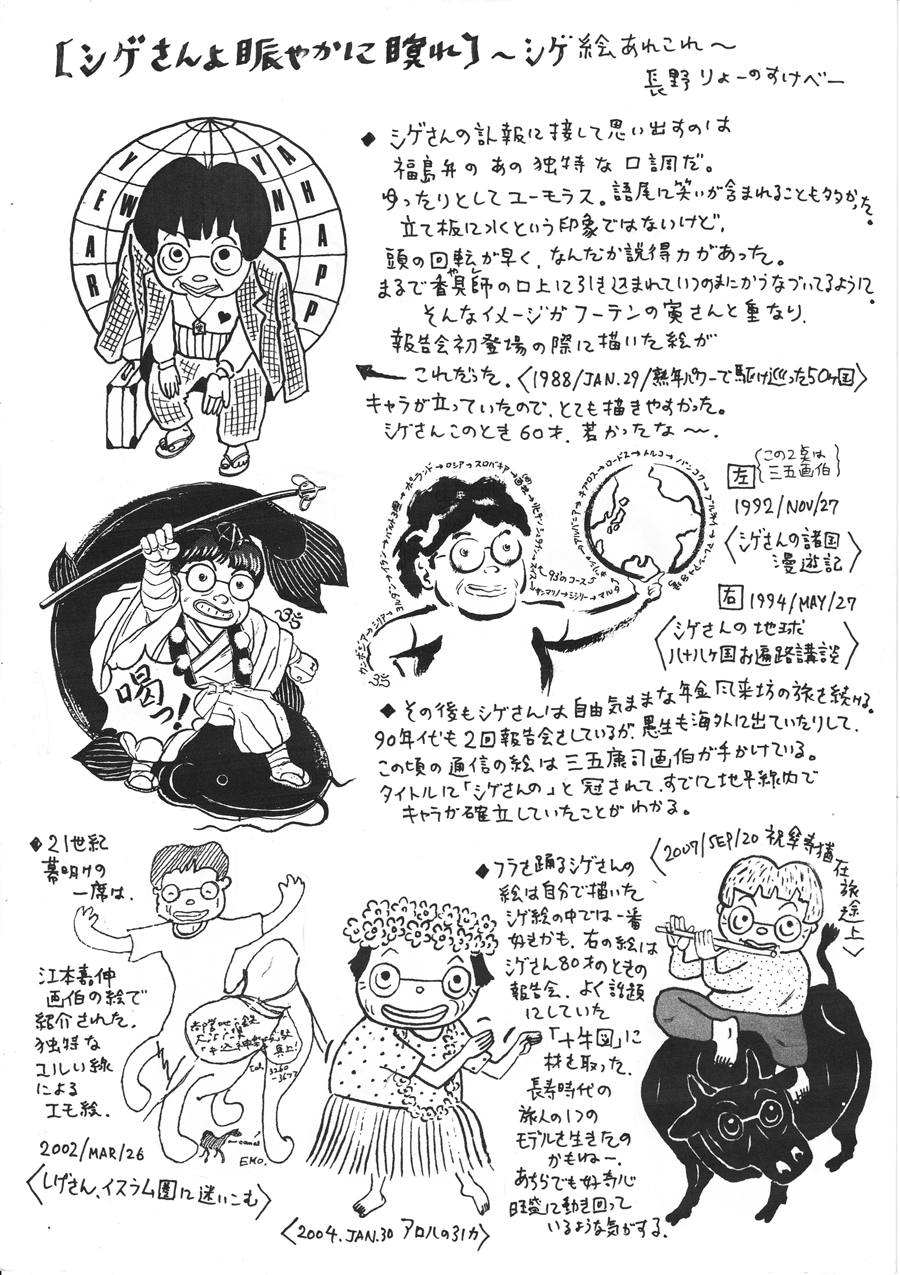 【シゲさんよ賑やかに瞑れ】～シゲ絵あれこれ～
長野りょーのすけべー
YEAR
NEW
YA
HAPP
◆シゲさんの訃報に接して思い出すのは
福島弁のあの独特な口調だ。
ゆったりとしてユーモラス。語尾に笑いが含まれることも多かった。
立て板に水という印象ではないけど、
頭の回転が早く、なんだか説得力があった。
まるで香具師の口上に引き込まれていつのまにかうなづいてるように。
やし
そんなイメージがフーテンの寅さんと重なり、
報告会初登場の際に描いた絵が
これだった。〈1988/JAN.29/熟年パワーで駆け巡った50ヶ国〉
キャラが立っていたので、とても描きやすかった。
シゲさんこのとき60才、若かったな～。
左
この2点は
三五画伯
1992/NOV/27
〈シゲさんの諸国
漫遊記〉
右 1994/MAY/27
〈シゲさんの地球
八十八ヶ国お遍路講談〉
喝っ!
ポーランド→ロシア→スロバキア
キプロス→ロードス→トルコ→バンコク→ブルネイ→マレーシア
'93のコース
サンマリノ→シシリー→マルタ
カンボジア→シリア
◆その後もシゲさんは自由気ままな年金風来坊の旅を続ける。
90年代も2回報告会をしているが、愚生も海外に出ていたりして、
この頃の通信の絵は三五康司画伯が手がけている。
タイトルに「シゲさんの」と冠されて、すでに地平線内で
キャラが確立していたことがわかる。
◆21世紀
幕明けの
一席は、
江本嘉伸
画伯の絵で
紹介された。
独特な
ユルい線
による
エモ絵。
2002/MAR/26
〈しげさん、イスラム圏に迷いこむ〉
tel.
3260
-3677
camel
EMO.
◆フラを踊るシゲさんの
絵は自分で描いた
シゲ絵の中では一番
好きかも。右の絵は
シゲさん80才のときの
報告会。よく話題
にしていた
「十牛図」に
材を取った。
長寿時代の
旅人の1つの
モデルを生きたの
かもね～。
あちらでも好奇心
旺盛に動き回って
いるような気がする。
〈2004.JAN.30 アロハの31カ〉
〈2007/SEP/20 祝傘寿猶在旅途上〉